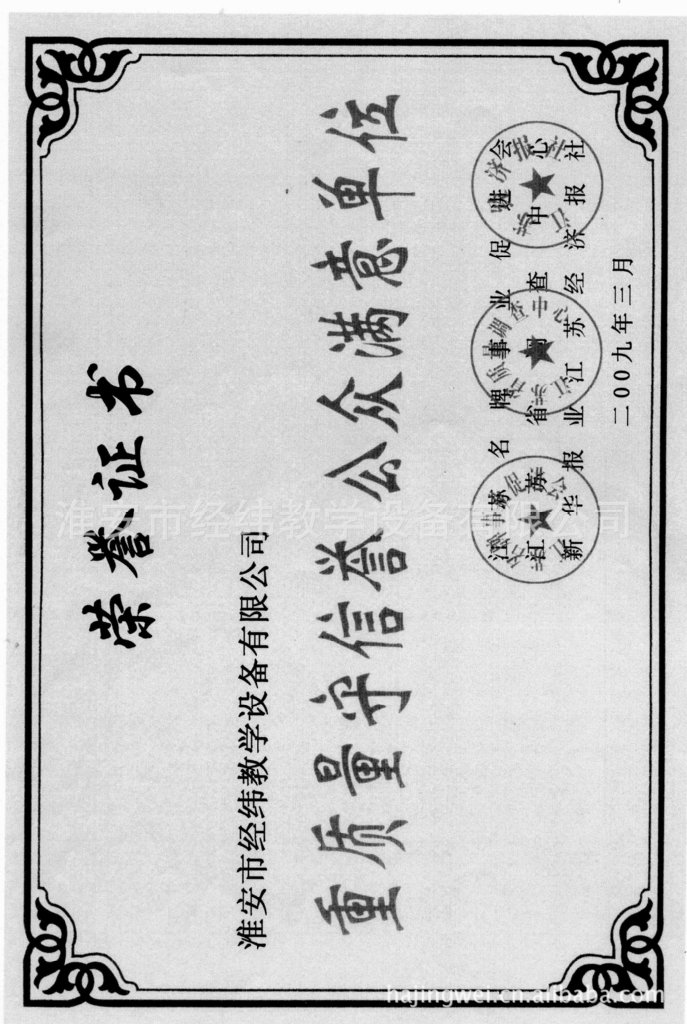 荣誉证书
淮安市经纬教学设备有限公司
重质量守信誉公众满意单位
江苏名牌事业促进会
江苏省 查中心
新华报业江苏经济报社
二00九年三月
淮安市经纬教学设备有限公司
hajingwei.cn.alibaba.com